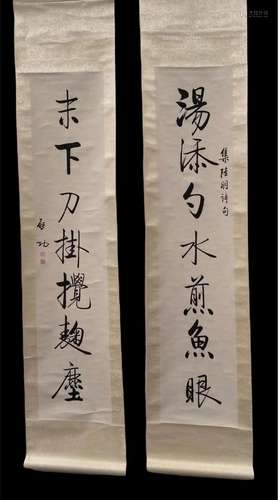 湯添勺水煎魚眼
集陸明詩句
末下刀掛攪麹塵
啟功